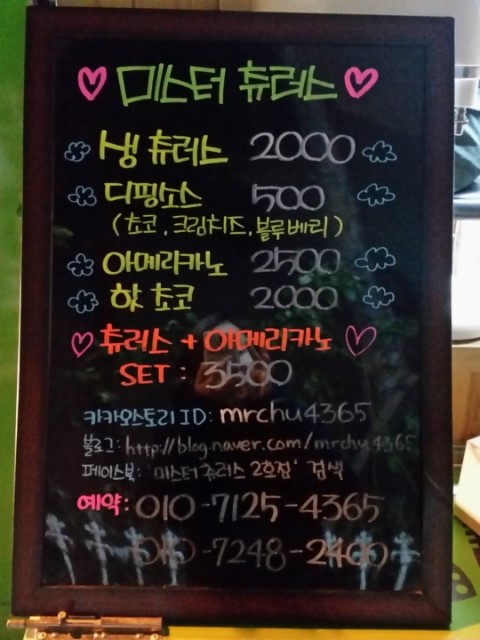 미스터 츄러스
생 츄러스 2000
디핑소스 500
(초코, 크림치즈, 블루베리)
아메리카노 2500
핫 초코 2000
츄러스 + 아메리카노
SET : 3500
카카오스토리 ID : mrchu4365
블로그 : http://blog.naver.com/mrchu4365
페이스북 : '미스터츄러스 2호점' 검색
예약 : 010-7125-4365
010-7248-2400